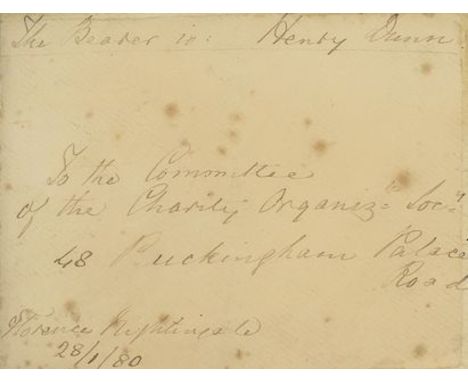 The Bearer is: Henry Dunn
To the Committee
of the Charity Organizn Socy
48 Buckingham Palace
Road
Florence Nightingale
28/1/80